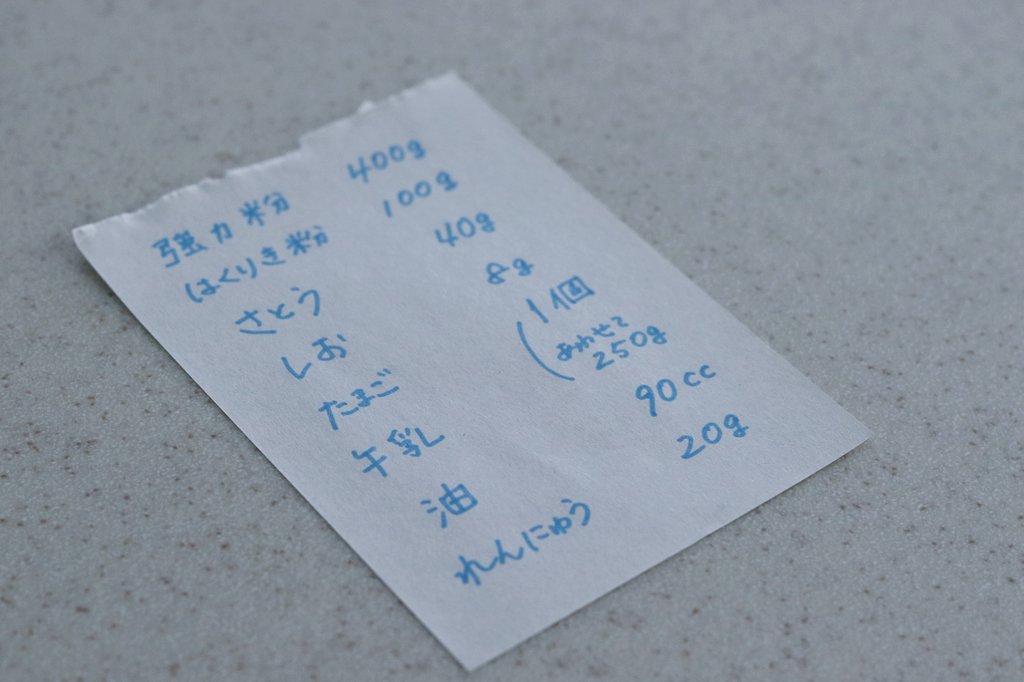 強力粉 400g
はくりき粉 100g
さとう 40g
しお 8g
たまご 1個
牛乳 (あわせて 250g
油 90cc
れんにゅう 20g